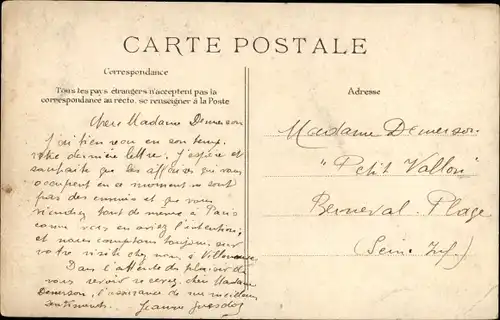 CARTE POSTALE
Correspondance
Tous les pays étrangers n'acceptent pas la
correspondance au recto, se renseigner à la Poste
Adresse
Chère Madame Demerson
J'ai bien reçu en son temps
votre dernière lettre. J'espère et
souhaite que les affaires qui vous
occupent en ce moment ne sont
pas des ennuis et que vous
viendrez tout de même à Paris
comme vous en aviez l'intention,
et nous comptons toujours sur
votre visite chez nous à
Dans l'attente du plaisir de
vous revoir recevez, chère Madame
Demerson, l'assurance de mes meilleurs
sentiments. Jeanne
Madame Demerson
"Petit Vallon"
Berneval-Plage
(Seine Inf.)